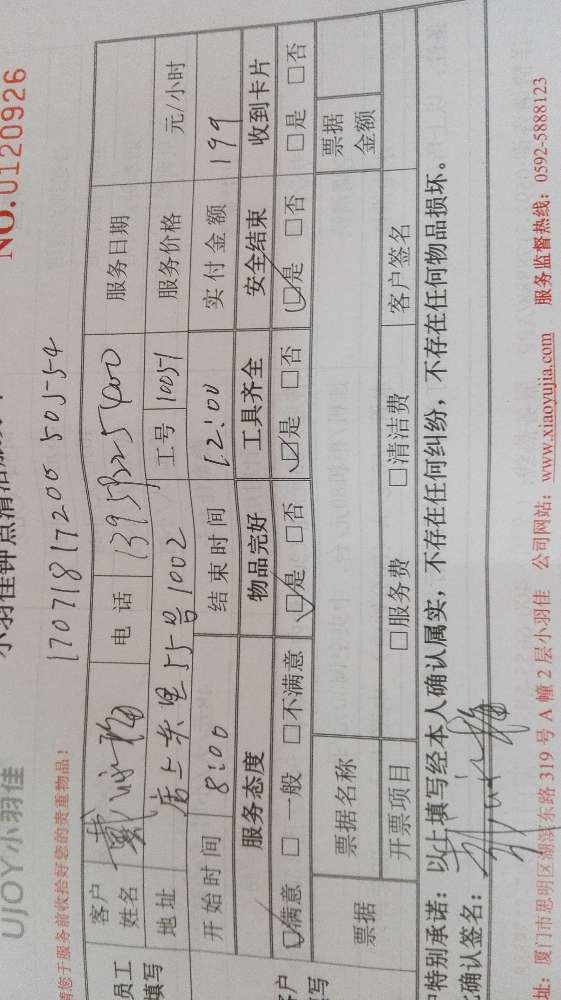 UJOY小羽佳
小羽佳钟点清洁服务
NO.0120926
请您于服务前收拾好您的贵重物品！
17071817200 50554
员工填写
客户姓名 戴 电话 服务日期
地址 后上东里55号1002 工号 10051 服务价格 元/小时
开始时间 8:00 结束时间 12:00 实付金额 199
服务态度 物品完好 工具齐全 安全结束 收到卡片
☑满意 □一般 □不满意 ☑是 □否 ☑是 □否 ☑是 □否 □是 □否
票据 票据名称 票据金额
开票项目 □服务费 □清洁费 客户签名
特别承诺：以上填写经本人确认属实，不存在任何纠纷，不存在任何物品损坏。
确认签名：
址：厦门市思明区湖滨东路319号A幢2层小羽佳 公司网站：www.xiaoyujia.com 服务监督热线：0592-5888123